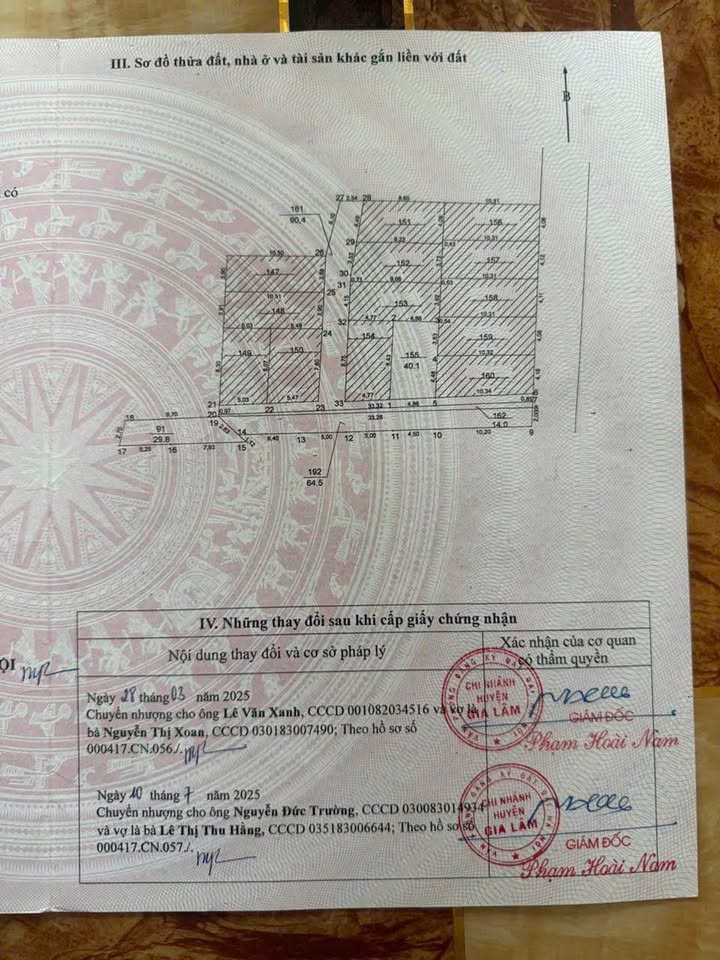 III. Sơ đồ thửa đất, nhà ở và tài sản khác gắn liền với đất
B
có
27 2,54 28 8,65 10,31
161
90,4
151 156
29 9,22 10,31
152 157
30
31 0,71 9,68 10,31
153 158
32 4,77 2 4,86 10,31
154 155 159
40.1 10,32
160
33 4,77 1 4,86 5 10,34
10,50 26
147
10,51 25
148
5,03 5,48 24
149 150
21 5,03 22 5,47 23
33,32
33,28
18 9,70 20 0,97
19 14
91
29.8
17 16 7,93 15
13 5,00 12 5,00 11 4,50 10 10,20 9
162
14.0
192
64.5
IV. Những thay đổi sau khi cấp giấy chứng nhận
Nội dung thay đổi và cơ sở pháp lý
Xác nhận của cơ quan
có thẩm quyền
Ngày 28 tháng 03 năm 2025
Chuyển nhượng cho ông Lê Văn Xanh, CCCD 001082034516 và vợ là
bà Nguyễn Thị Xoan, CCCD 030183007490; Theo hồ sơ số
000417.CN.056./.
CHI NHÁNH
HUYỆN
GIA LÂM
GIÁM ĐỐC
Phạm Hoài Nam
Ngày 10 tháng 7 năm 2025
Chuyển nhượng cho ông Nguyễn Đức Trường, CCCD 030083014934
và vợ là bà Lê Thị Thu Hằng, CCCD 035183006644; Theo hồ sơ số
000417.CN.057./.
CHI NHÁNH
HUYỆN
GIA LÂM
GIÁM ĐỐC
Phạm Hoài Nam